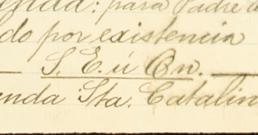 para Padre
do por existencia
S. E. u On.
enda: Sta. Catalin